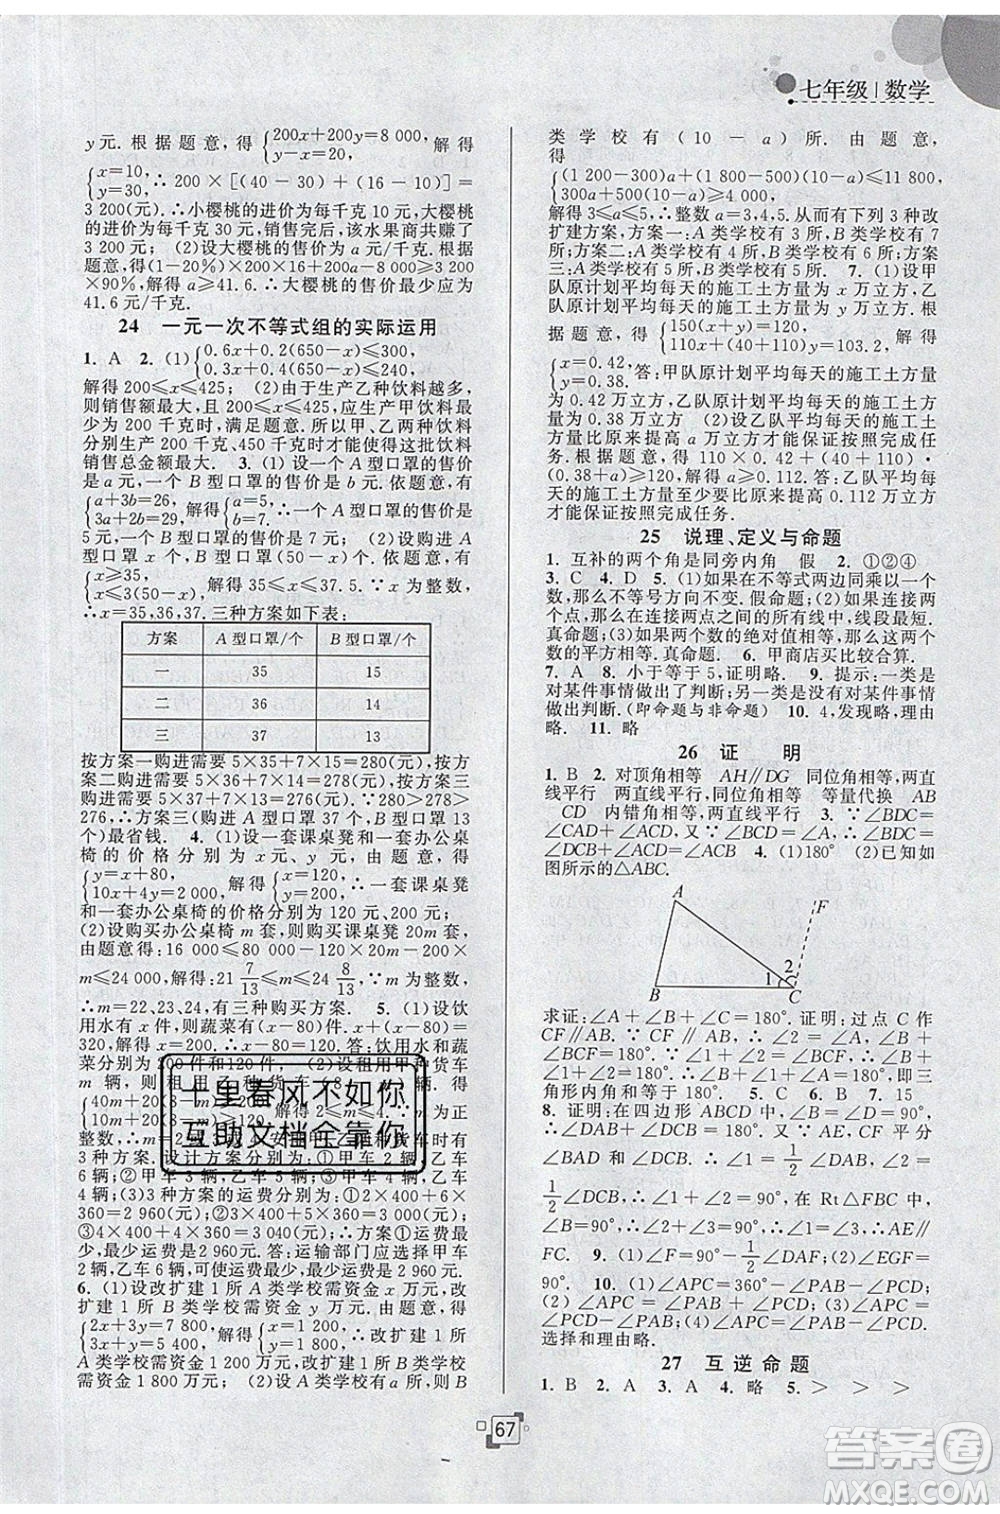 七年级 | 数学
y元. 根据题意, 得{200x+200y=8 000, y-x=20. 解得
{x=10, y=30. ∴200×[(40-30)+(16-10)]=
3 200(元). ∴小樱桃的进价为每千克 10 元, 大樱桃
的进价为每千克 30 元, 销售完后, 该水果商共赚了
3 200 元; (2)设大樱桃的售价为 a 元/千克. 根据
题意, 得(1-20%)×200×16+200a≥8 000+3 200
×90%, 解得 a≥41.6. ∴大樱桃的售价最少应为
41.6 元/千克.
24 一元一次不等式组的实际运用
1. A 2. (1){0.6x+0.2(650-x)≤300, 0.3x+0.4(650-x)≤240.
解得 200≤x≤425; (2)由于生产乙种饮料越多,
则销售额最大, 且 200≤x≤425, 应生产甲饮料
200千克时, 满足题意. 所以甲、乙两种饮料分
别生产 200 千克、450 千克时能使得这批饮料
销售总金额最大. 3. (1) 设一个 A 型口罩的售价
是 a 元, 一个 B 型口罩的售价是 b 元, 依题意, 有
{a+3b=26, 3a+2b=29. 解得{a=5, b=7. 一个 A 型口罩的售价是
5 元, 一个 B 型口罩的售价是 7 元; (2)设购进 A
型口罩 x 个, 依题意有
{x≥35, x≤3(50-x). 解得 35≤x≤37.5. ∵x 为整数,
∴x=35,36,37. 三种方案如下表:
方案 A 型口罩/个 B 型口罩/个
一 35 15
二 36 14
三 37 13
按方案一购进需要 5×35+7×15=280(元) 按
方案二购进需要 5×36+7×14=278(元) 按方案三
购进需要 5×37+7×13=276(元) ∵280>278>276
∴方案三(购进 A 型口罩 37 个, B 型口罩 13
个)最省钱. 4. (1)设一套课桌凳和一套办公桌
椅的价格分别为 x 元、y 元, 得
{y=x+80, 4x+5y=1000. 解得{x=120, y=200. ∴一套课桌凳
和一套办公桌椅的价格分别为 120 元、200 元;
(2)设购买办公桌椅 m 套, 则购买课桌凳 20m 套,
由题意得: 16 000≤80×120+20m×120+200×
m≤24 000, 解得: 21 7/13≤m≤24 8/13. ∵m 为整数,
∴m=22,23,24, 有三种购买方案. 5. (1)设饮
用水有 x 件, 则蔬菜有(x-80)件. x+(x-80)=
320, 解得 x=200. ∴x-80=120. 答: 饮用水和蔬
菜分别为 200 件和 120 件; (2)设租用甲种货车
m 辆, 则租用乙种货车(8-m)辆, 得
{40m+20(8-m)≥200, 10m+20(8-m)≥120. 解得 2≤m≤4. ∵m 为正
整数, ∴m=2 或 3 或 4, 安排甲、乙两种货车时有
3 种方案. 设计方案分别为: ①甲车 2 辆, 乙车 6
辆; ②甲车 3 辆, 乙车 5 辆; ③甲车 4 辆, 乙车 4
辆; (3)3 种方案的运费分别为: ①2×400+6×
360=2 960(元); ②3×400+5×360=3 000(元);
③4×400+4×360=3 040(元); ∴方案①运费
最少, 最少运费是 2 960元. 答: 运输部门应选择甲车 2
辆, 乙车 6 辆, 可使运费最少, 最少运费是 2 960 元.
6. (1)设改扩建 1 所 A 类学校需资金 x 万元, 改
扩建 1 所 B 类学校需资金 y 万元. 由题意, 得
{2x+3y=7 800, 3x+y=5 400. 解得{x=1 200, y=1 800. ∴改扩建 1 所
A 类学校需资金 1 200 万元, 改扩建 1 所 B 类学校
需资金 1 800 万元; (2)设 A 类学校有 a 所, 则 B
类学校有(10-a)所. 由题意,
得
{(1 200-300)a+(1 800-500)(10-a)≤11 800, 300a+500(10-a)≥4 000.
解得 3≤a≤5, ∴整数 a=3,4,5. 从而有下列 3 种改
扩建方案: 方案一: A 类学校有 3 所, B 类学校有 7
所; 方案二: A 类学校有 4 所, B 类学校有 6 所; 方案
三: A 类学校有 5 所, B 类学校有 5 所. 7. (1)设甲
队原计划平均每天的施工土方量为 x 万立方, 乙
队原计划平均每天的施工土方量为 y 万立方. 根
据题意, 得{150(x+y)=120, 110x+(40+110)y=103.2. 解得
{x=0.42, y=0.38. 答: 甲队原计划平均每天的施工土方量
为 0.42 万立方, 乙队原计划平均每天的施工土方
量为 0.38 万立方 (2)设乙队平均每天的施工土
方量比原来提高 a 万立方才能保证按时完成任
务. 根据题意, 得 110×0.42+(40+110)·
(0.38+a)≥120, 解得 a≥0.112. 答: 乙队平均每
天的施工土方量至少要比原来提高 0.112 万立方
才能保证按时完成任务.
25 说理、定义与命题
1. 互补的两个角是同旁内角 假 2. ①②④
3. C 4. D 5. (1)如果在不等式两边同乘以一个
数, 那么不等号方向不变. 假命题; (2)如果连接两
个点, 那么在连接两点之间的所有线中, 线段最短.
真命题; (3)如果两个数的绝对值相等, 那么这两个
数的平方相等. 真命题. 6. 甲商店买比较合算.
7. A 8. 小于等于 5, 证明略. 9. 提示: 一类是
对某件事情做出了判断; 另一类是没有对某件事
情做出判断. (即命题与非命题) 10. 4, 发现略, 理由
略. 11. 略
26 证 明
1. B 2. 对顶角相等 AH∥DG 同位角相等, 两直
线平行 两直线平行, 同位角相等 等量代换 AB
CD 内错角相等, 两直线平行 3. ∵∠BDC=
∠CAD+∠ACD, 又∵∠BCD=∠BCA+
∠ACD ∴∠BDC=∠BCD 4. (1)180° (2)已知如
图所示的△ABC.
A F 1 2 B C
求证: ∠A+∠B+∠C=180°. 证明: 过点 C 作
CF∥AB, ∴∠2=∠A, ∵∠B+∠BCF=180°,
∴∠1+∠2+∠B=180°, ∴∠A+∠B+∠C=180°. 即: 三
角形内角和为 180° 5. B 6. 120° 7. 15
8. 证明: ∵在四边形 ABCD 中, ∠A=∠C=90°,
∴∠ABC+∠ADC=180°. ∵AE 平分
∠DAB, CF 平分∠DCB, ∴∠BAE=1/2∠DAB,
1/2∠DCB, ∠DCB=180°, 在 Rt△FBC 中,
∠B=90°, ∴AE∥
FC. 9. (1)∠F=90°-1/2∠DAF; (2)∠EGF=
90°. 10. (1)∠APC=360°-∠PAB-∠PCD;
(2)∠APC=∠PAB+∠PCD; (3)∠APC=
∠PCD-∠PAB; (4)∠APC=∠PAB-∠PCD.
选择和理由略.
27 互逆命题
1. B 2. A 3. A 4. 略 5. > > > >
67
十里春风不如你
互助文档会靠你
答案圈
MXQE.COM